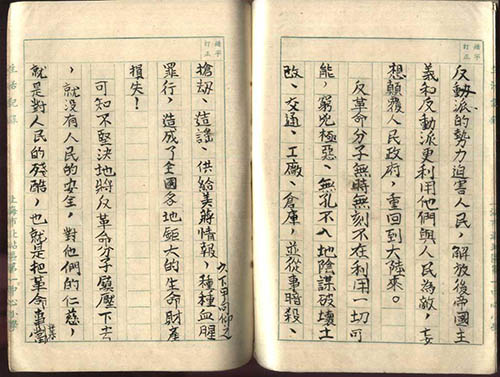 反動派的勢力迫害人民，解放後帝國主
義和反動派更利用他們與人民為敵，妄
想顛覆人民政府，重回到大陸來。
反革命分子無時無刻不在利用一切可
能，窮兇極惡、無孔不入地陰謀破壞土
改、交通、工廠、倉庫，並從事暗殺、
搶劫、造謠、供給美蔣情報，種種血腥
罪行，造成了全國各地頗大的生命財產
損失！
可知不堅決地將反革命分子鎮壓下去
，就沒有人民的安全，對他們的仁慈，
就是對人民的殘酷，也就是把革命事業
生活紀錄